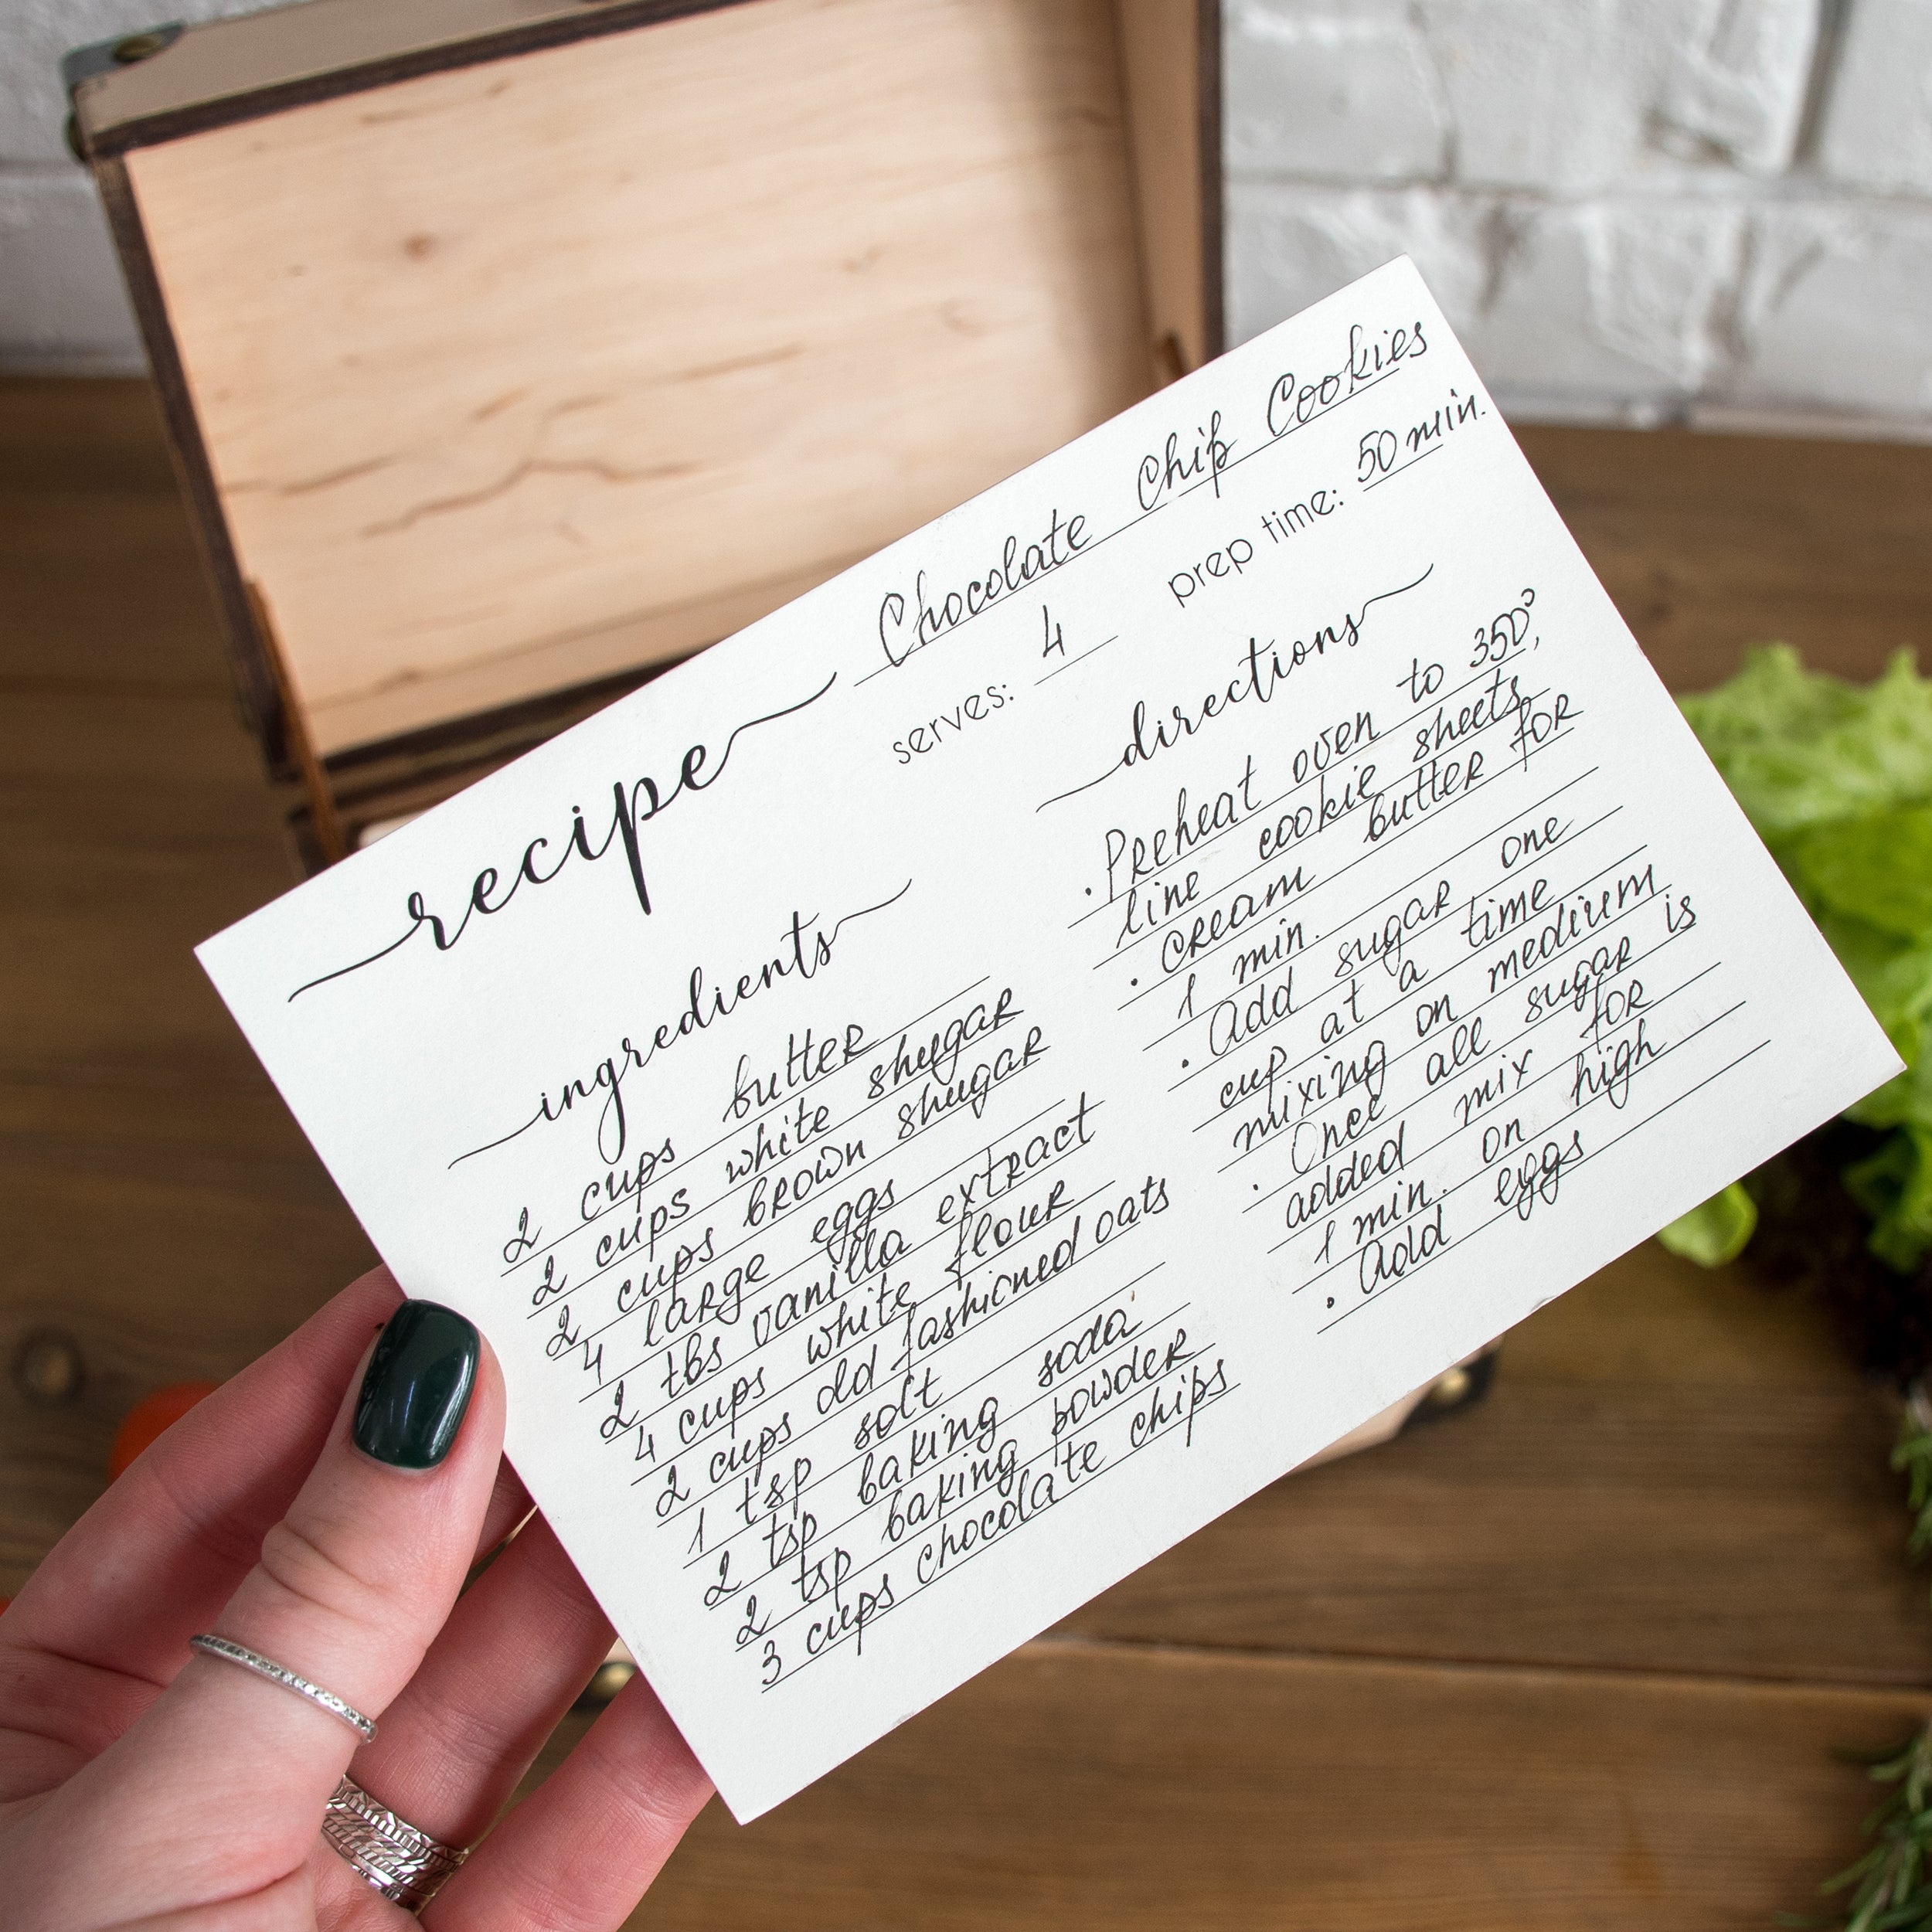 recipe Chocolate Chip Cookies
serves: 4 prep time: 50 min.
ingredients
2 cups butter
2 cups white shugar
2 cups brown shugar
4 large eggs
2 tbs vanilla extract
4 cups white flour
2 cups old fashioned oats
1 tsp solt
2 tsp baking soda
2 tsp baking powder
3 cups chocolate chips
directions
· Preheat oven to 350°,
line cookie sheets,
· cream butter for
1 min.
· Add sugar one
cup at a time
mixing on medium
· Once all sugar is
added mix for
1 min. on high
· Add eggs